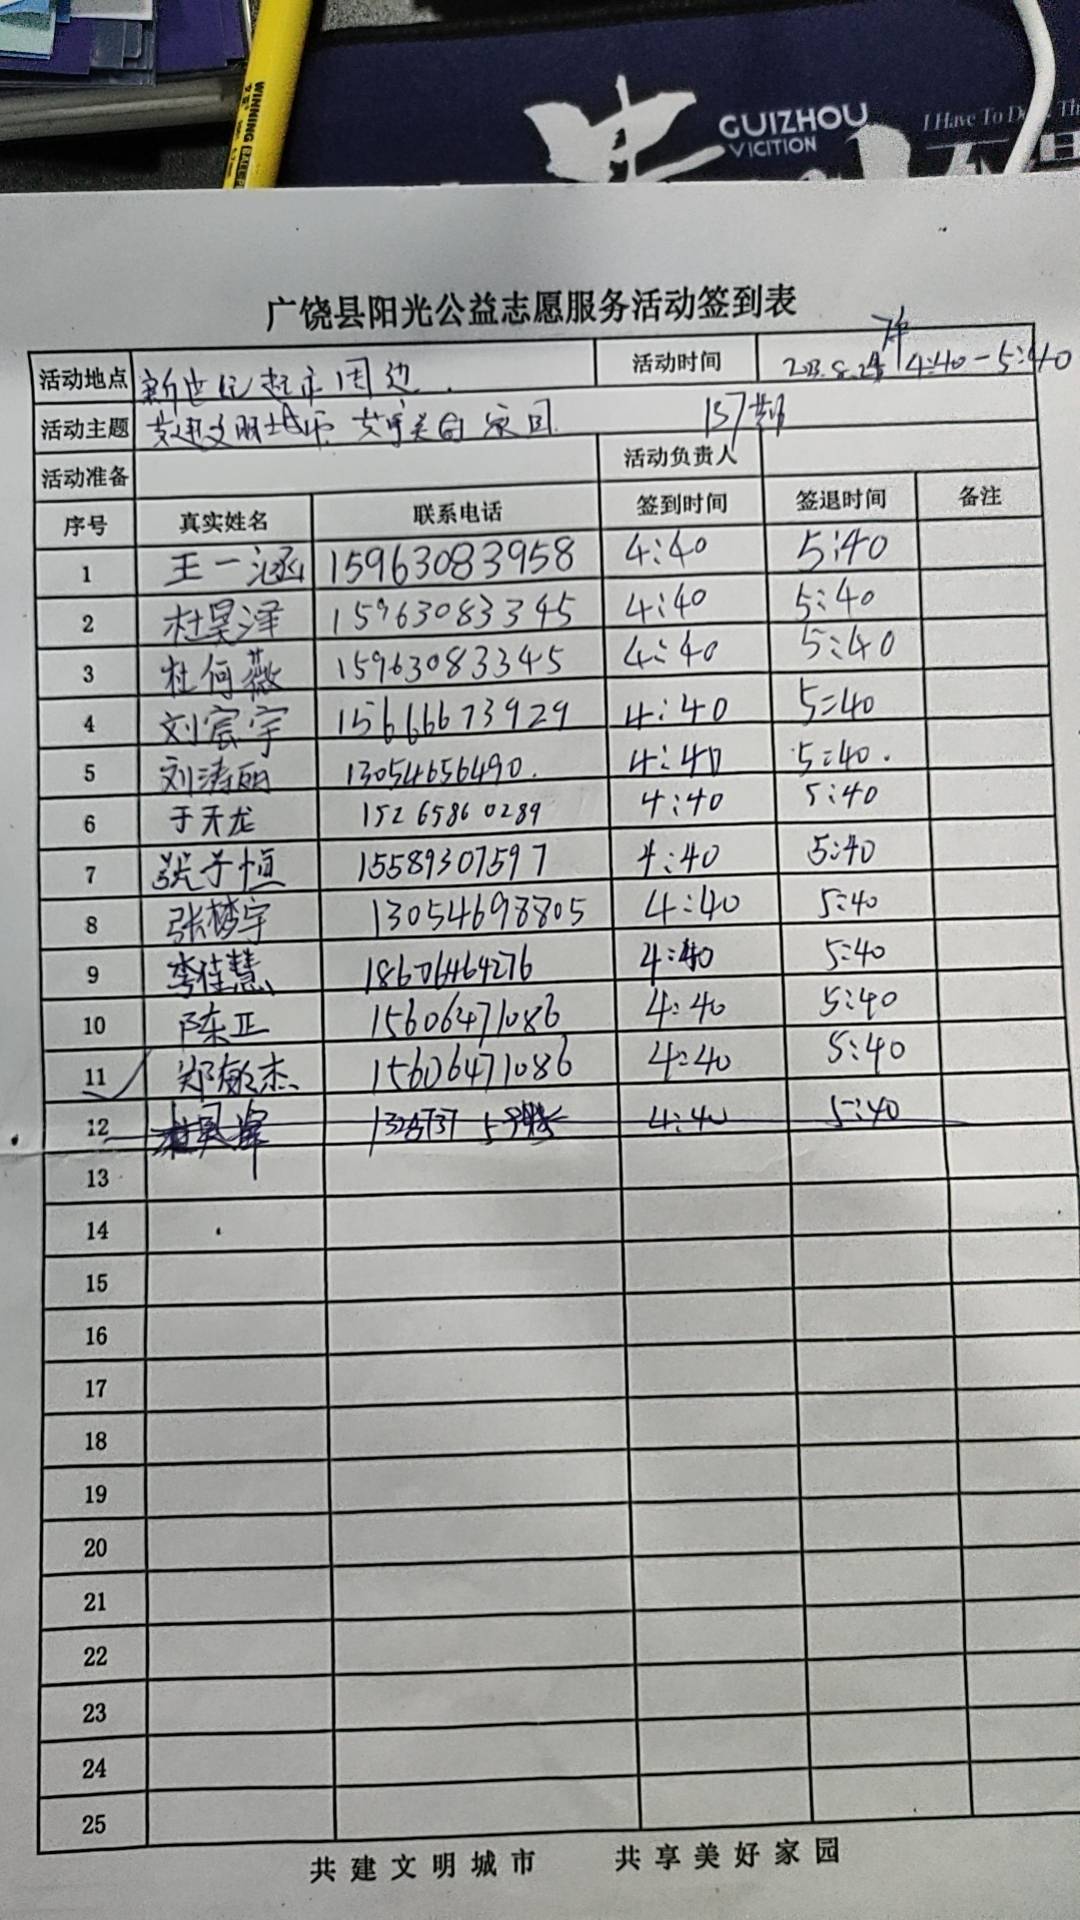 WINNING
GUIZHOU
VICITION
I Have To Do
广饶县阳光公益志愿服务活动签到表
活动地点 新世纪超市周边. 活动时间 4:40-5:40
活动主题 共建文明城市 共享美好家园 157期
活动准备 活动负责人
序号 真实姓名 联系电话 签到时间 签退时间 备注
1 王一涵 15963083958 4:40 5:40
2 杜昊泽 15963083345 4:40 5:40
3 杜何薇 15963083345 4:40 5:40
4 刘宸宇 15666673929 4:40 5:40
5 刘涛丽 13054656490. 4:40 5:40.
6 于天龙 15265860289 4:40 5:40
7 张子恒 15589307597 4:40 5:40
8 张梦宇 13054698805 4:40 5:40
9 李佳慧 18606464276 4:40 5:40
10 陈正 15606471086 4:40 5:40
11 郑敏杰 15606471086 4:40 5:40
12 4:40 5:40
13
14
15
16
17
18
19
20
21
22
23
24
25
共建文明城市 共享美好家园